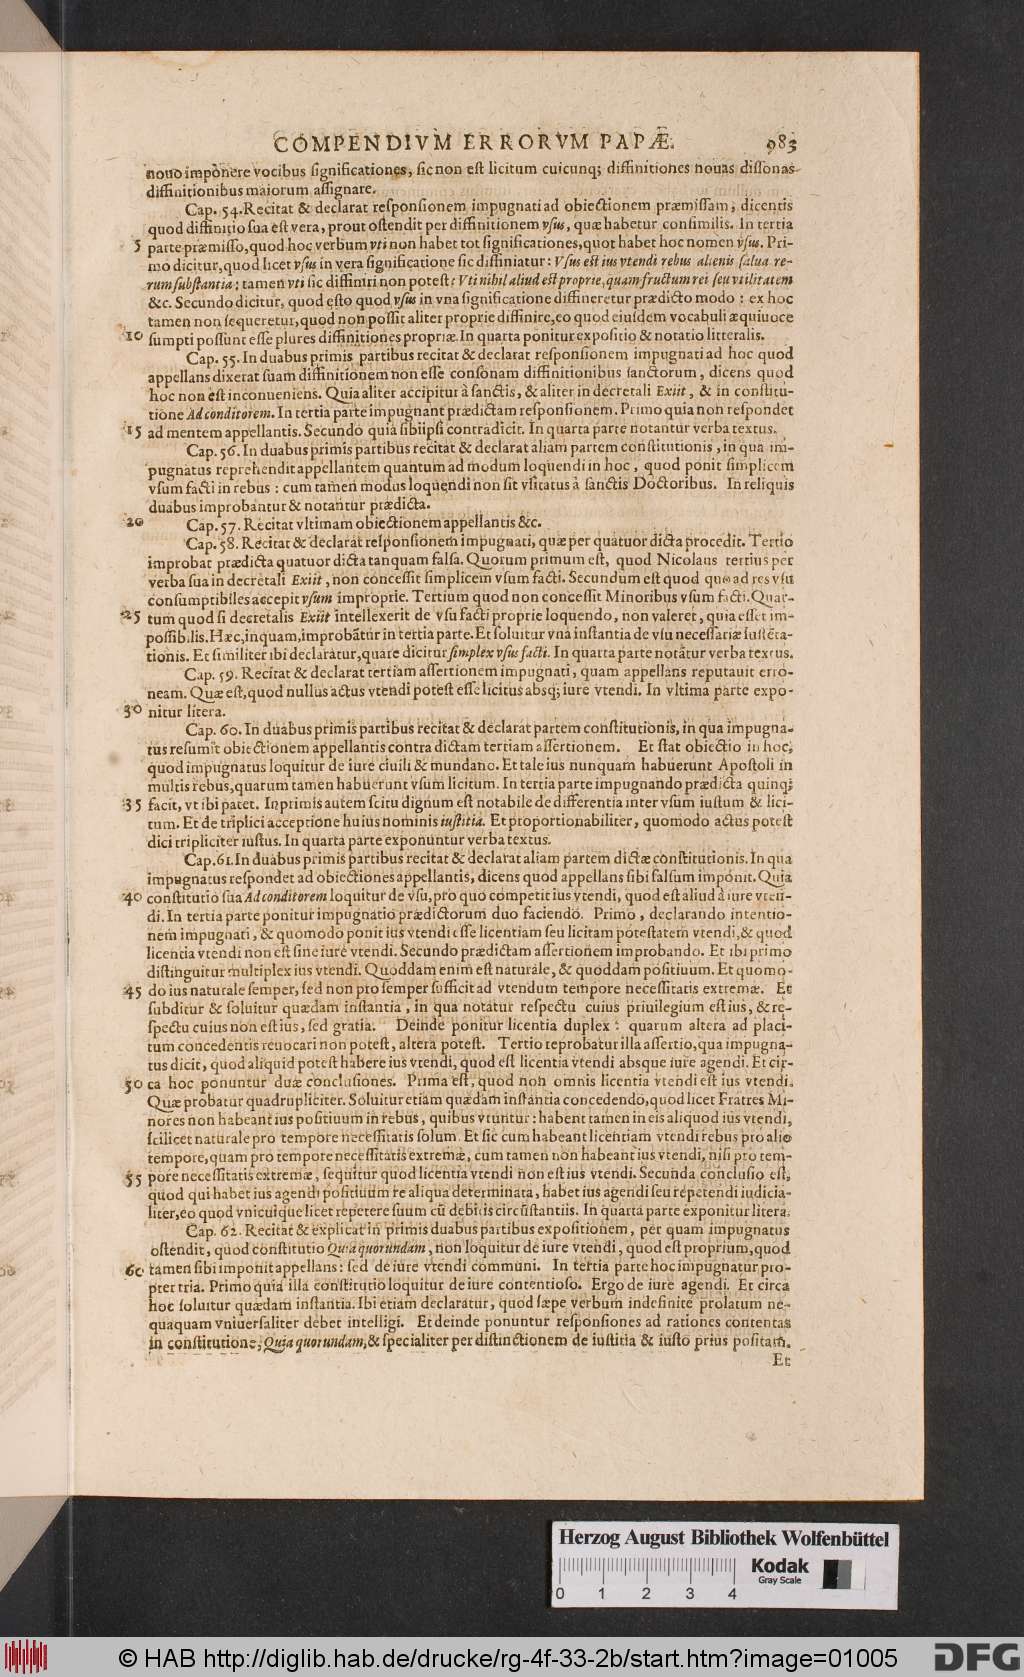 COMPENDIVM ERRORVM PAPÆ. 983
nouo imponere vocibus significationes, sic non est licitum cuicunq; diffinitiones nouas dissonas
diffinitionibus maiorum assignare.
Cap. 54. Recitat & declarat responsionem impugnati ad obiectionem præmissam, dicentis
quod diffinitio sua est vera, prout ostendit per diffinitionem vsus, quæ habetur consimilis. In tertia
5 parte præmisso, quod hoc verbum vti non habet tot significationes, quot habet hoc nomen vsus. Pri-
mo dicitur, quod licet vsus in vera significatione sic diffiniatur: Vsus est ius vtendi rebus alienis salua re-
rum substantia; tamen vti sic diffiniri non potest: Vti nihil aliud est proprie, quam fructum rei seu vtilitatem
&c. Secundo dicitur, quod esto quod vsus in vna significatione diffineretur prædicto modo: ex hoc
tamen non sequeretur, quod non possit aliter proprie diffinire, eo quod eiusdem vocabuli æquiuoce
10 sumpti possunt esse plures diffinitiones propriæ. In quarta ponitur expositio & notatio litteralis.
Cap. 55. In duabus primis partibus recitat & declarat responsionem impugnati ad hoc quod
appellans dixerat suam diffinitionem non esse consonam diffinitionibus sanctorum, dicens quod
hoc non est inconueniens. Quia aliter accipitur à sanctis, & aliter in decretali Exiit, & in constitu-
tione Ad conditorem. In tertia parte impugnant prædictam responsionem. Primo quia non respondet
15 ad mentem appellantis. Secundo quia sibiipsi contradicit. In quarta parte notantur verba textus.
Cap. 56. In duabus primis partibus recitat & declarat aliam partem constitutionis, in qua im-
pugnatus reprehendit appellantem quantum ad modum loquendi in hoc, quod ponit simplicem
vsum facti in rebus: cum tamen modus loquendi non sit vsitatus à sanctis Doctoribus. In reliquis
duabus improbantur & notantur prædicta.
20 Cap. 57. Recitat vltimam obiectionem appellantis &c.
Cap. 58. Recitat & declarat responsionem impugnati, quæ per quatuor dicta procedit. Tertio
improbat prædicta quatuor dicta tanquam falsa. Quorum primum est, quod Nicolaus tertius per
verba sua in decretali Exiit, non concessit simplicem vsum facti. Secundum est quod quo ad res vsu
consumptibiles accepit vsum improprie. Tertium quod non concessit Minoribus vsum facti. Quar-
25 tum quod si decretalis Exiit intellexerit de vsu facti proprie loquendo, non valeret, quia esset im-
possibilis. Hæc, inquam, improbātur in tertia parte. Et soluitur vna instantia de vsu necessariæ sustēta-
tionis. Et similiter ibi declaratur, quare dicitur simplex vsus facti. In quarta parte notātur verba textus.
Cap. 59. Recitat & declarat tertiam assertionem impugnati, quam appellans reputauit erro-
neam. Quæ est, quod nullus actus vtendi potest esse licitus absq; iure vtendi. In vltima parte expo-
30 nitur litera.
Cap. 60. In duabus primis partibus recitat & declarat partem constitutionis, in qua impugna-
tus resumit obiectionem appellantis contra dictam tertiam assertionem. Et stat obiectio in hoc,
quod impugnatus loquitur de iure ciuili & mundano. Et tale ius nunquam habuerunt Apostoli in
multis rebus, quarum tamen habuerunt vsum licitum. In tertia parte impugnando prædicta quinq;
35 facit, vt ibi patet. Inprimis autem scitu dignum est notabile de differentia inter vsum iustum & lici-
tum. Et de triplici acceptione huius nominis iustitia. Et proportionabiliter, quomodo actus potest
dici tripliciter iustus. In quarta parte exponuntur verba textus.
Cap. 61. In duabus primis partibus recitat & declarat aliam partem dictæ constitutionis. In qua
impugnatus respondet ad obiectiones appellantis, dicens quod appellans sibi falsum imponit. Quia
40 constitutio sua Ad conditorem loquitur de vsu, pro quo competit ius vtendi, quod est aliud à iure vten-
di. In tertia parte ponitur impugnatio prædictorum duo faciendo. Primo, declarando intentio-
nem impugnati, & quomodo ponit ius vtendi esse licentiam seu licitam potestatem vtendi, & quod
licentia vtendi non est sine iure vtendi. Secundo prædictam assertionem improbando. Et ibi primo
distinguitur multiplex ius vtendi. Quoddam enim est naturale, & quoddam positiuum. Et quomo-
45 do ius naturale semper, sed non pro semper sufficit ad vtendum tempore necessitatis extremæ. Et
subditur & soluitur quædam instantia, in qua notatur respectu cuius priuilegium est ius, & re-
spectu cuius non est ius, sed gratia. Deinde ponitur licentia duplex: quarum altera ad placi-
tum concedentis reuocari non potest, altera potest. Tertio reprobatur illa assertio, qua impugna-
tus dicit, quod aliquid potest habere ius vtendi, quod est licentia vtendi absque iure agendi. Et cir-
50 ca hoc ponuntur duæ conclusiones. Prima est, quod non omnis licentia vtendi est ius vtendi.
Quæ probatur quadrupliciter. Soluitur etiam quædam instantia concedendo, quod licet Fratres Mi-
nores non habeant ius positiuum in rebus, quibus vtuntur: habent tamen in eis aliquod ius vtendi,
scilicet naturale pro tempore necessitatis solum. Et sic cum habeant licentiam vtendi rebus pro alio
tempore, quam pro tempore necessitatis extremæ, cum tamen non habeant ius vtendi, nisi pro tem-
55 pore necessitatis extremæ, sequitur quod licentia vtendi non est ius vtendi. Secunda conclusio est,
quod qui habet ius agendi positiuum re aliqua determinata, habet ius agendi seu repetendi iudicia-
liter, eo quod vnicuique licet repetere suum cū debitis circūstantiis. In quarta parte exponitur litera.
Cap. 62. Recitat & explicat in primis duabus partibus expositionem, per quam impugnatus
ostendit, quod constitutio Quia quorundam, non loquitur de iure vtendi, quod est proprium, quod
60 tamen sibi imponit appellans: sed de iure vtendi communi. In tertia parte hoc impugnatur pro-
pter tria. Primo quia illa constitutio loquitur de iure contentioso. Ergo de iure agendi. Et circa
hoc soluitur quædam instantia. Ibi etiam declaratur, quod sæpe verbum indefinite prolatum ne-
quaquam vniuersaliter debet intelligi. Et deinde ponuntur responsiones ad rationes contentas
in constitutione, Quia quorundam, & specialiter per distinctionem de iustitia & iusto prius positam.
Et
Herzog August Bibliothek Wolfenbüttel
Kodak
Gray Scale
0 1 2 3 4
© HAB http://diglib.hab.de/drucke/rg-4f-33-2b/start.htm?image=01005
DFG